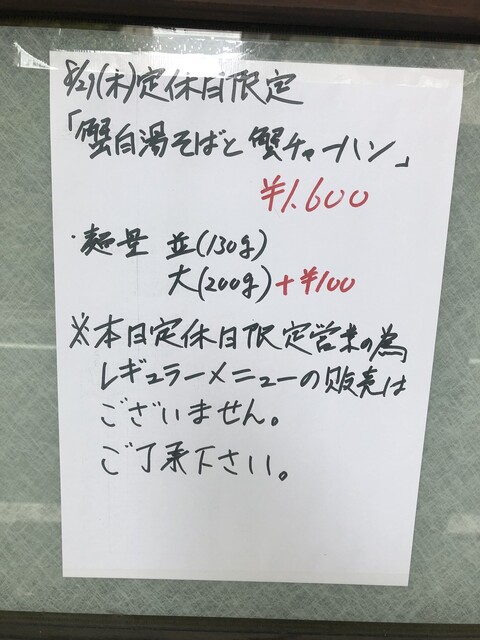 8/29(木)定休日限定
「蟹白湯そばと蟹チャーハン」
¥1.600
・麺量 並(130g)
大(200g)+¥100
※本日定休日限定営業の為
レギュラーメニューの販売は
ございません。
ご了承下さい。